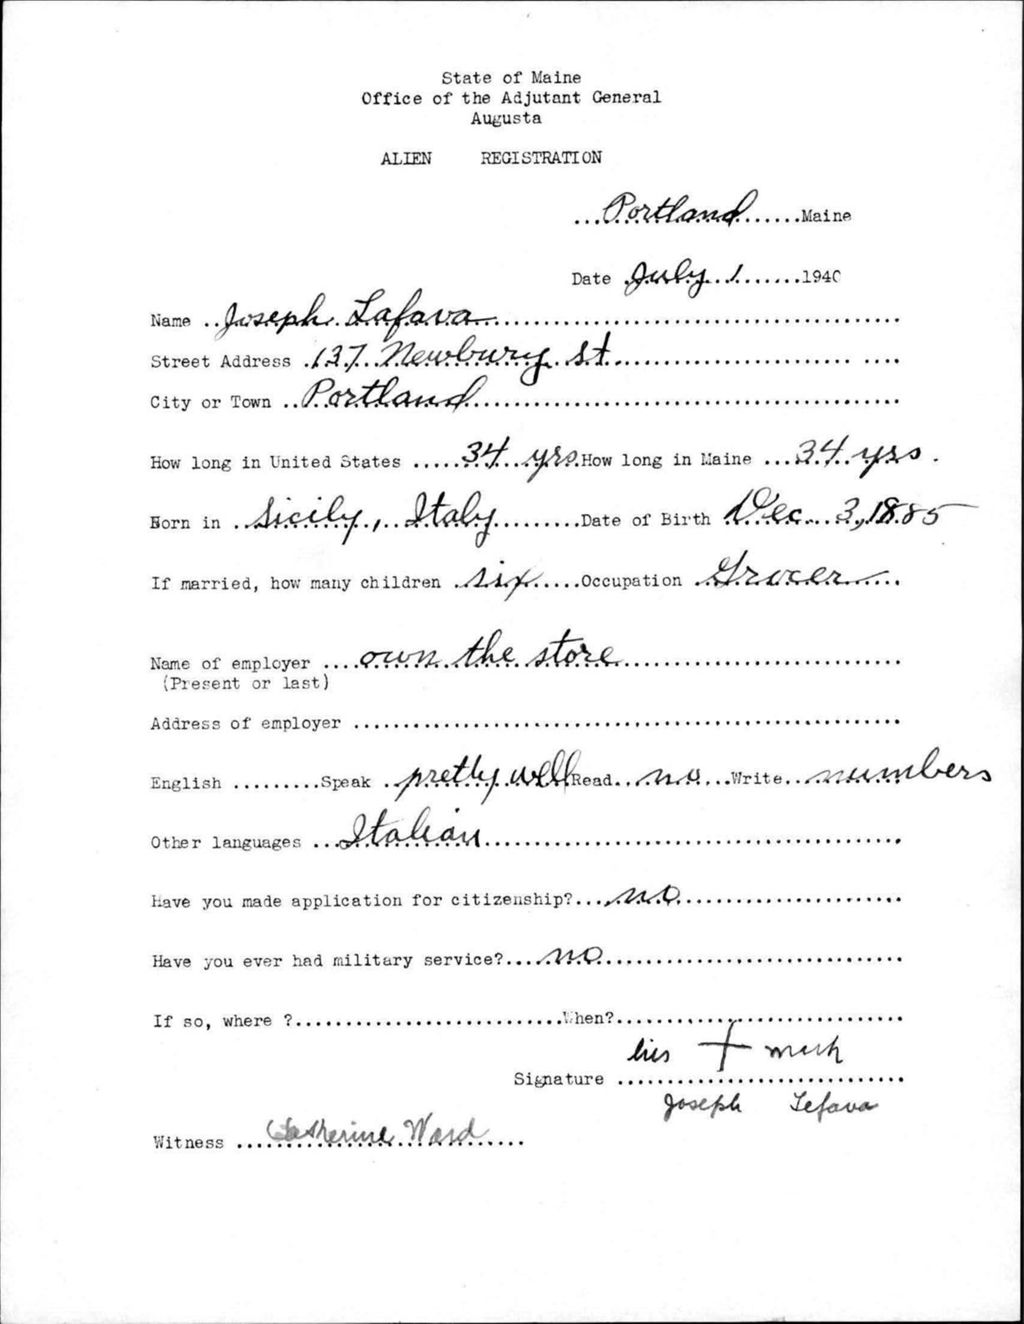 State of Maine
Office of the Adjutant General
Augusta
ALIEN REGISTRATION
...Portland.......Maine
Date .July 1.......1940
Name ..Joseph Lafava..................................................
Street Address .137 Newbury St............................. ....
City or Town ..Portland..................................................
How long in United States .....34 yrs.How long in Maine ...34 yrs.
Born in ..Sicily, Italy..........Date of Birth .Dec. 3, 1885
If married, how many children .six.....Occupation .Grocer....
Name of employer ....own the store..................................
(Present or last)
Address of employer ..................................................................
English .........Speak ..pretty well Read..no...Write..numbers
Other languages ...Italian..................................................
Have you made application for citizenship?....no...........................
Have you ever had military service?....no....................................
If so, where ?................................When?...................................
his + mark
Signature ..................................
Joseph Lefava
Witness ...Catherine Ward.....